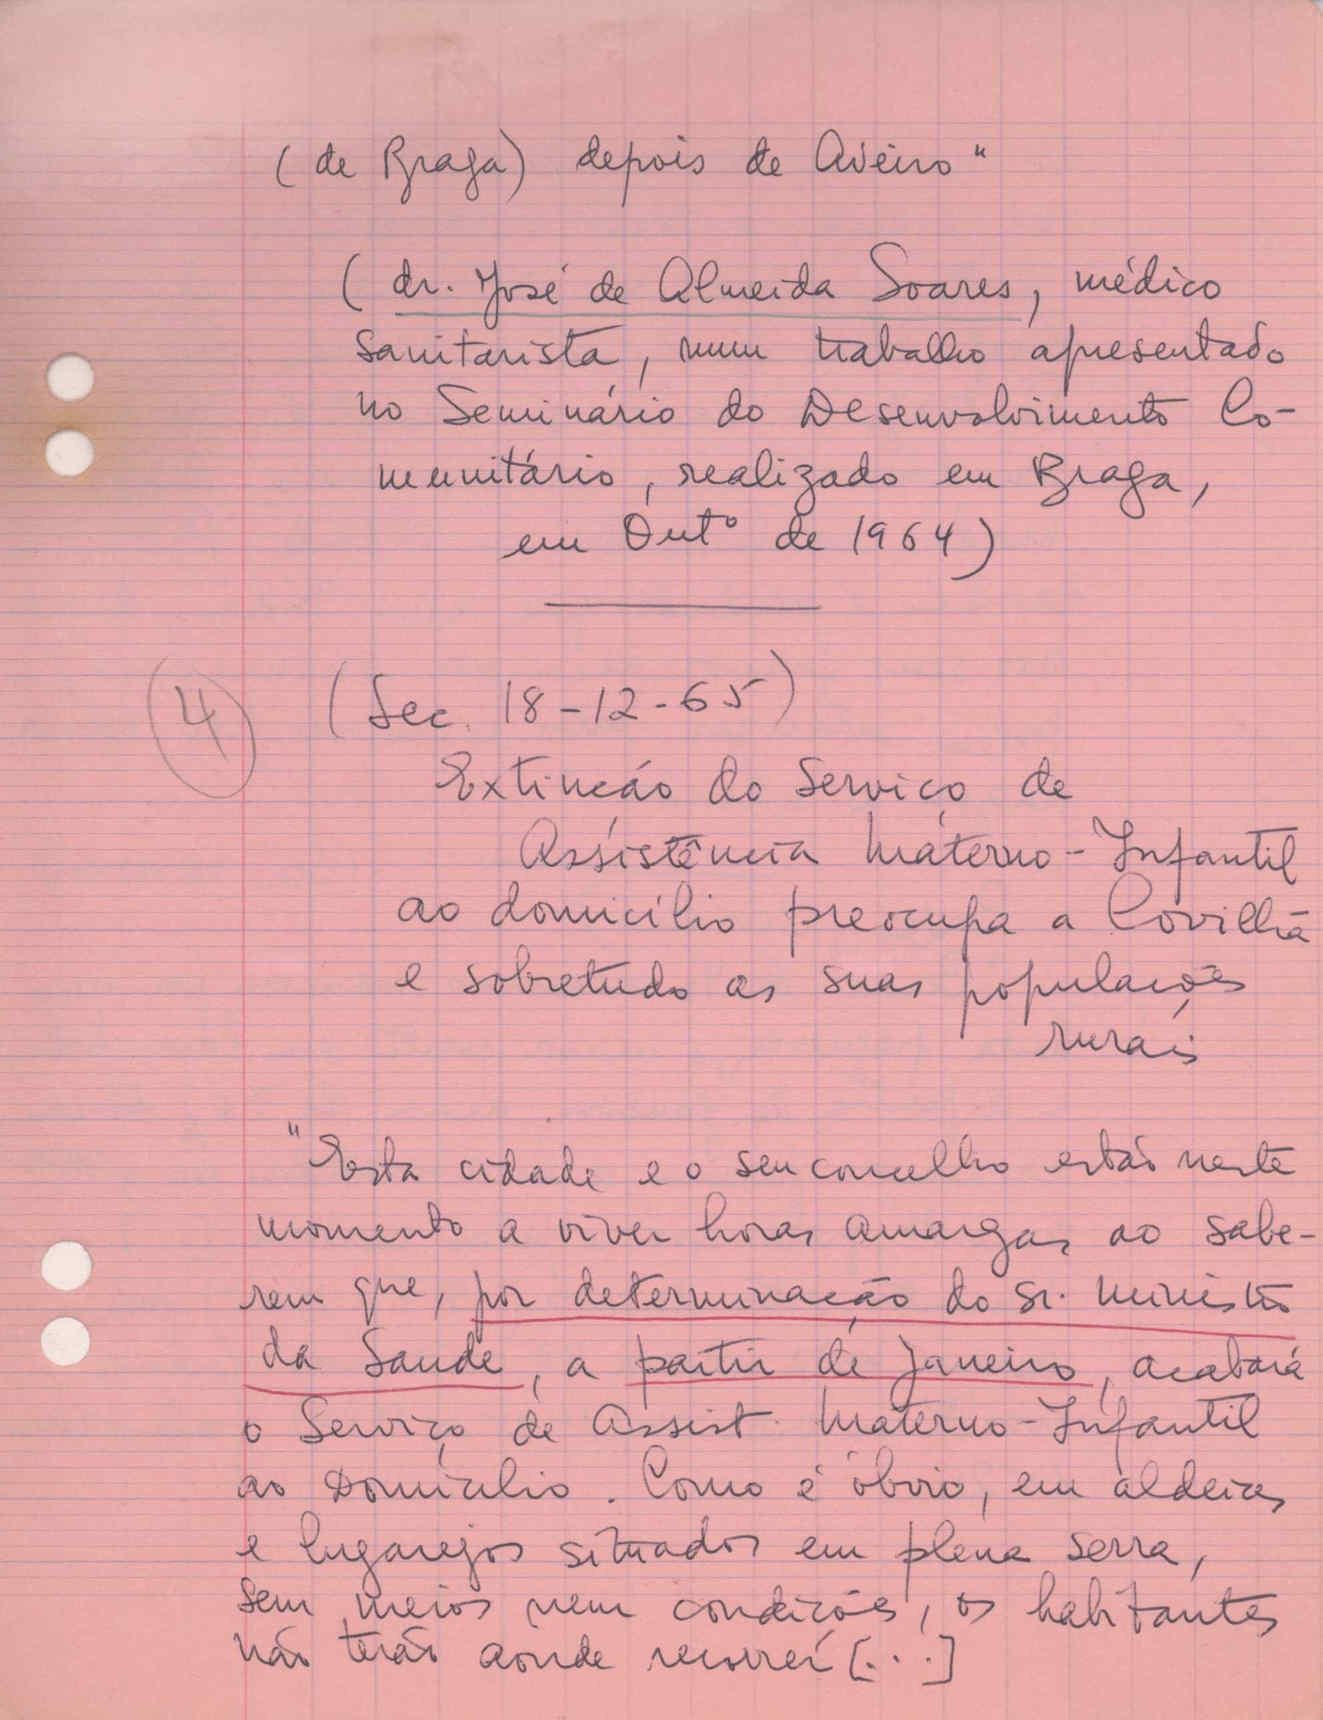 (de Braga) depois de Aveiro"
(dr. José de Almeida Soares, médico
sanitarista, num trabalho apresentado
no Seminário do Desenvolvimento Co-
munitário, realizado em Braga,
em Outº de 1964)
4 (Sec. 18-12-65)
Extinção do Serviço de
Assistência Materno-Infantil
ao domicílio preocupa a Covilhã
e sobretudo as suas populações
rurais
"Esta cidade e o seu concelho estão neste
momento a viver horas amargas ao sabe-
rem que, por determinação do sr. Ministro
da Saude, a partir de Janeiro, acabará
o Serviço de Assist. Materno-Infantil
ao Domicílio. Como é óbvio, em aldeias
e lugarejos situados em plena serra,
sem meios nem condições, os habitantes
não terão aonde recorrer [...]